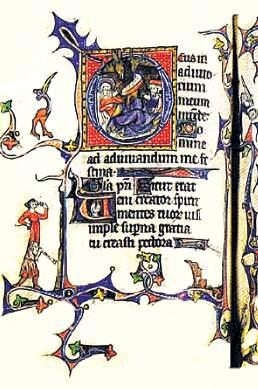 eus in
adiuto
rium
meum
intende
Do
mine
ad adiuuandum me fe
stina
Gloria pri Sicut erat
Ueni creator spiri
mentes tuor uisi
imple superna gratia
tu creasti pectora